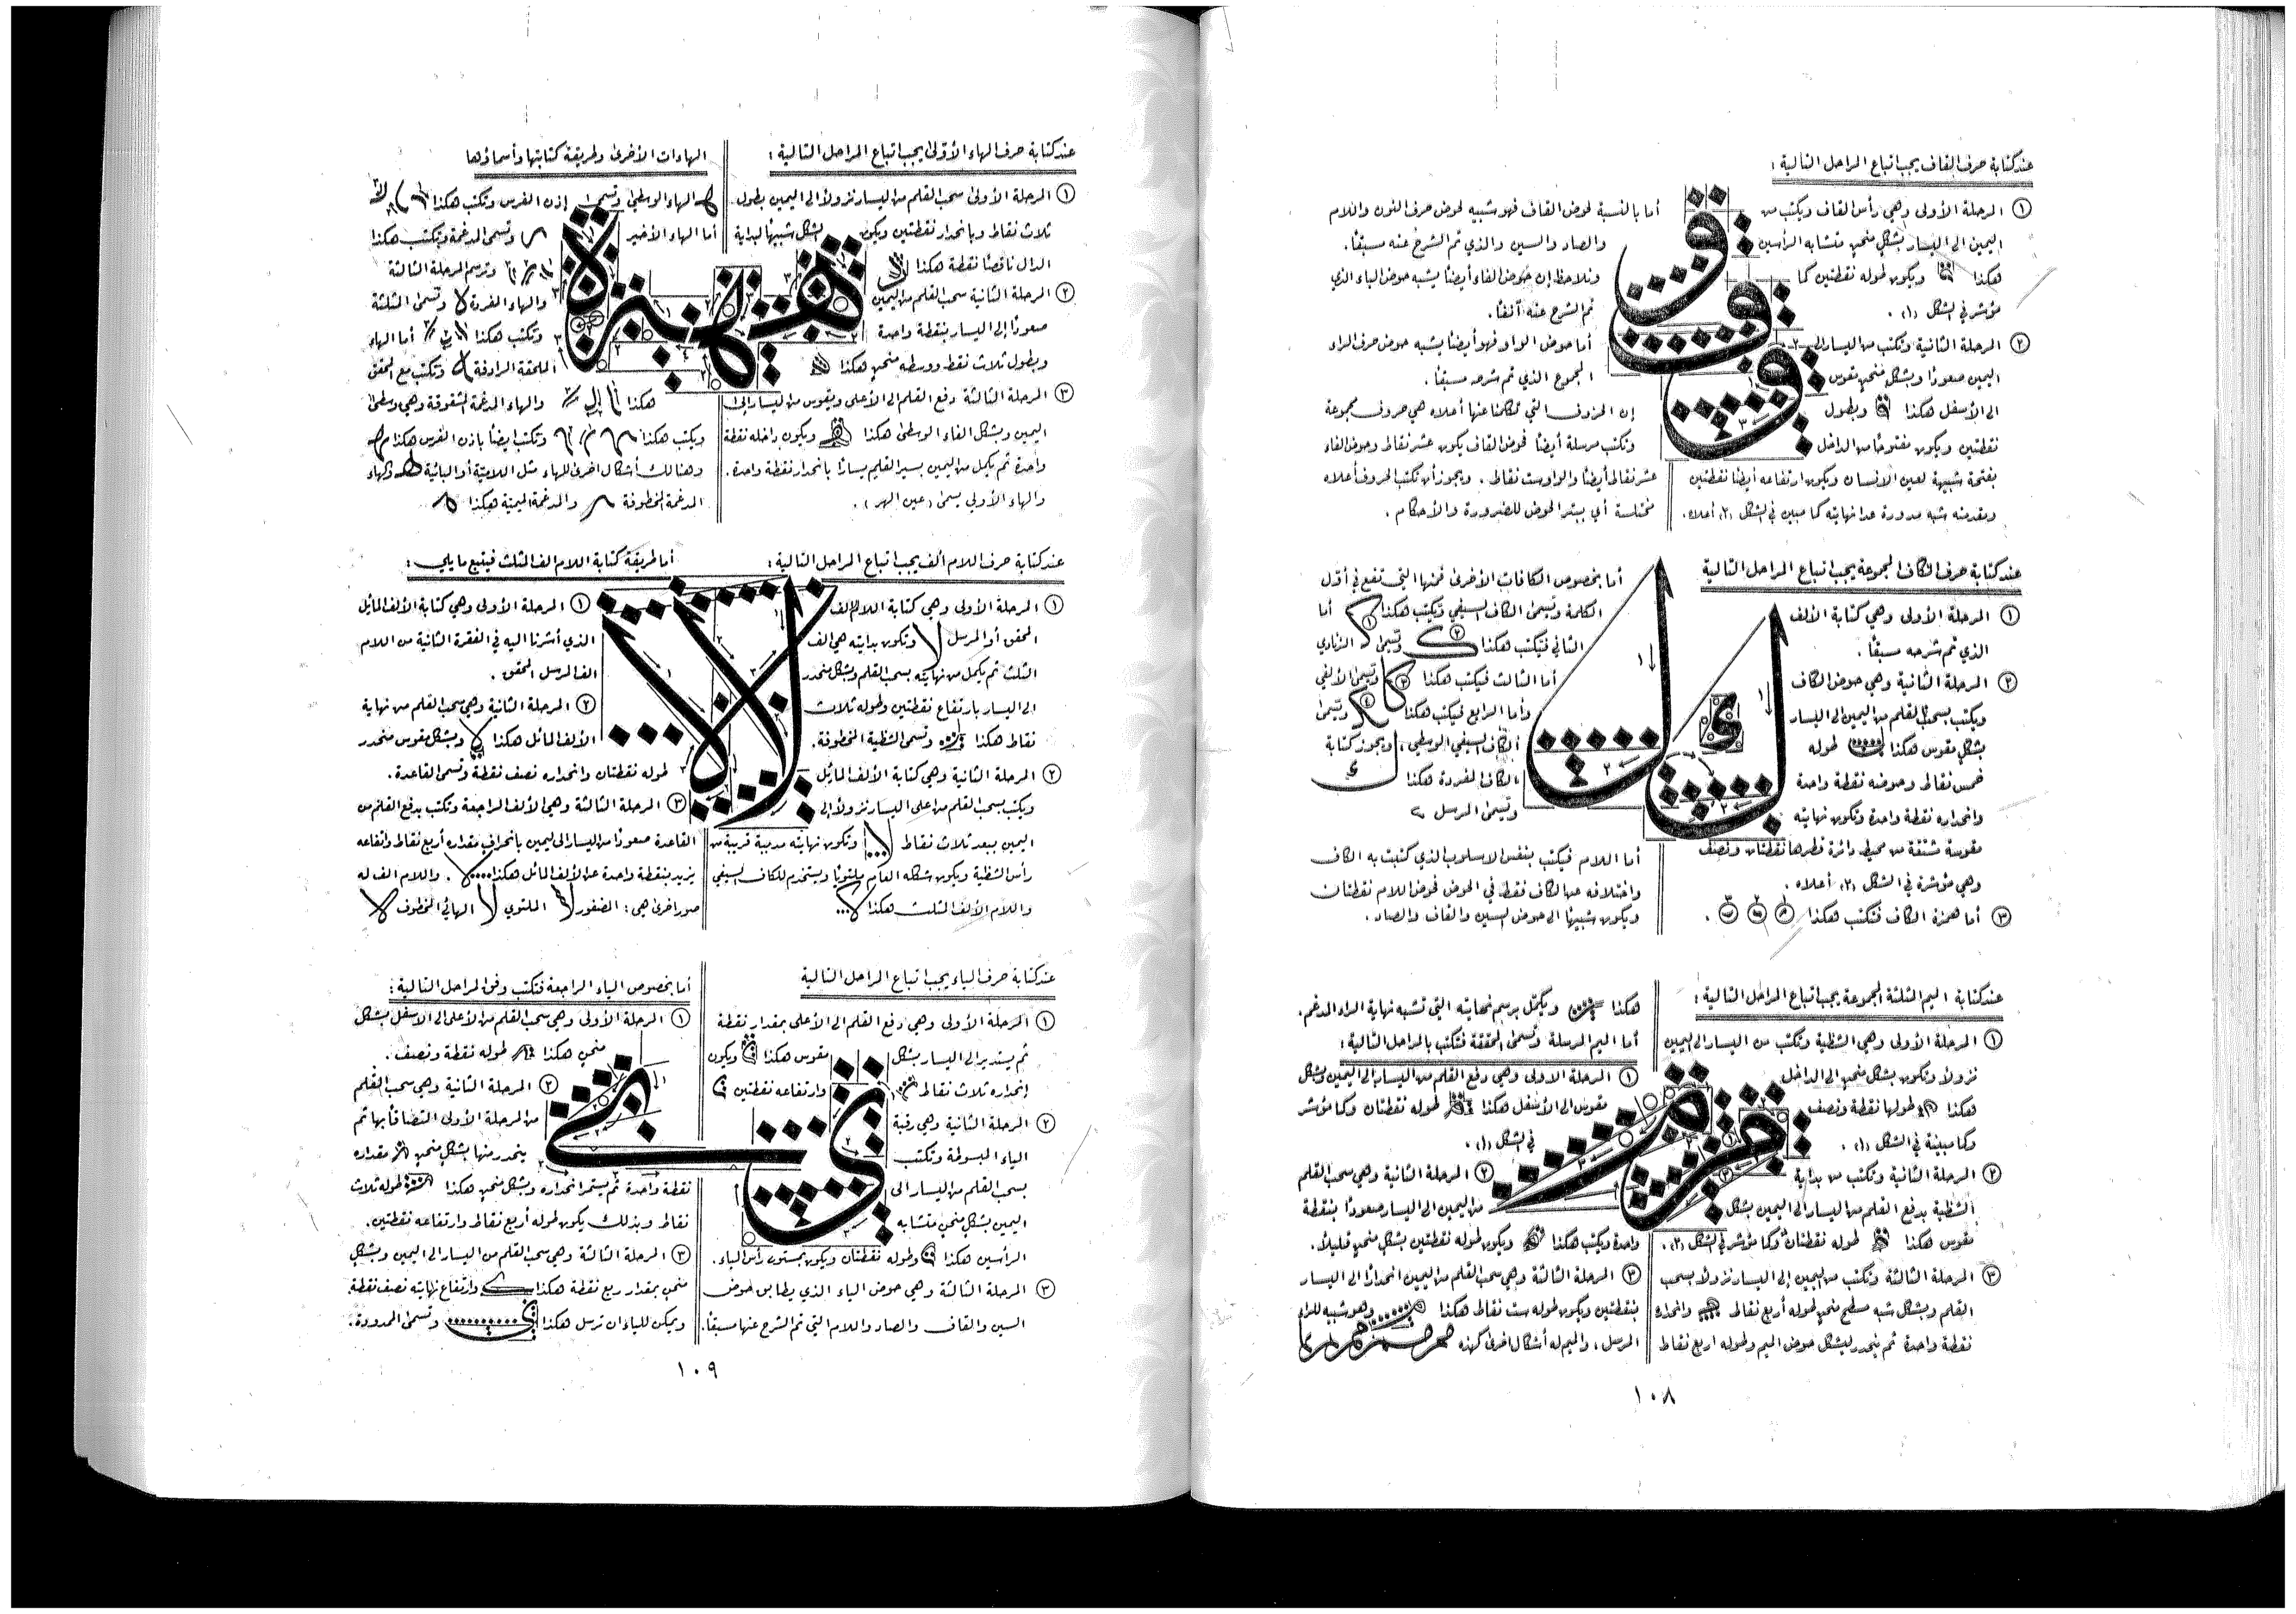 عند كتابة حرف القاف يجب اتباع المراحل التالية :
١ المرحلة الأولى وهي رأس القاف ويكتب من
اليمين الى اليسار بشكل منحني متشابه الرأسين
هكذا ويكون طوله نقطتين كما
مؤشر في الشكل (١) .
٢ المرحلة الثانية وتكتب من اليسار الى
اليمين صعوداً وبشكل منحني مقوس
الى الأسفل هكذا وبطول
نقطتين ويكون مفتوحاً من الداخل
بفتحة شبيهة لعين الانسان ويكون ارتفاعه أيضاً نقطتين
ومقدمته شبه مدورة عدا نهايته كما مبين في الشكل (٢) أعلاه .
أما بالنسبة لحوض القاف فهو شبيه لحوض حرف النون واللام
والصاد والسين والذي تم الشرح عنه مسبقاً .
ونلاحظ إن حوض الفاء أيضاً يشبه حوض الباء الذي
تم الشرح عنه آنفاً .
أما حوض الواو فهو أيضاً يشبه حوض حرف الراء
المجموع الذي تم شرحه مسبقاً .
إن الحروف التي تكلمنا عنها أعلاه هي حروف مجموعة
وتكتب مرسلة أيضاً فحوض القاف يكون عشر نقاط وحوض الفاء
عشر نقاط أيضاً والواو ست نقاط . ويجوز أن تكتب الحروف أعلاه
مختلسة أي يبتر الحوض للضرورة والأحكام .
عند كتابة حرف الكاف المجموعة يجب اتباع المراحل التالية
١ المرحلة الأولى وهي كتابة الألف
الذي تم شرحه مسبقاً .
٢ المرحلة الثانية وهي حوض الكاف
ويكتب بسحب القلم من اليمين الى اليسار
بشكل مقوس هكذا طوله
خمس نقاط وحوضه نقطة واحدة
وانحداره نقطة واحدة وتكون نهايته
مقوسة مشتقة من محيط دائرة قطرها نقطتان ونصف
وهي مؤشرة في الشكل (٢) أعلاه .
٣ أما همزة الكاف فتكتب هكذا
أما بخصوص الكافات الأخرى فمنها التي تقع في أول
الكلمة وتسمى الكاف السيفي وتكتب هكذا أما
الثاني فتكتب هكذا وتسمى الزنادي
أما الثالث فيكتب هكذا وتسمى الألفي
وأما الرابع فيكتب هكذا وتسمى
الكاف السيفي الوسطي ، ويجوز كتابة
الكاف المفردة هكذا
وتسمى المرسل
أما اللام فيكتب بنفس الاسلوب الذي كتبت به الكاف
واختلافه عن الكاف فقط في الحوض فحوض اللام نقطتان
ويكون شبيهاً الى حوض السين والقاف والصاد .
عند كتابة الميم المثلثة المجموعة يجب اتباع المراحل التالية :
١ المرحلة الأولى وهي الشظية وتكتب من اليسار الى اليمين
نزولاً وتكون بشكل منحني الى الداخل
هكذا طولها نقطة ونصف
وكما مبينة في الشكل (١) .
٢ المرحلة الثانية وتكتب من بداية
الشظية بدفع القلم من اليسار الى اليمين بشكل
مقوس هكذا طوله نقطتان وكما مؤشر في الشكل (٢) .
٣ المرحلة الثالثة وتكتب من اليمين إلى اليسار نزولاً بسحب
القلم وبشكل شبه مسطح منحني طوله أربع نقاط وانحداره
نقطة واحدة ثم ينحدر ليشكل حوض الميم وطوله اربع نقاط
هكذا ويكمل برسم نهايته التي تشبه نهاية الراء المدغم .
أما الميم المرسلة وتسمى المحققة فتكتب بالمراحل التالية :
١ المرحلة الاولى وهي دفع القلم من اليسار الى اليمين وبشكل
مقوس الى الأسفل هكذا طوله نقطتان وكما مؤشر
في الشكل (١) .
٢ المرحلة الثانية وهي سحب القلم
من اليمين الى اليسار صعوداً بنقطة
واحدة ويكتب هكذا ويكون طوله نقطتين بشكل منحني قليلاً .
٣ المرحلة الثالثة وهي سحب القلم من اليمين انحداراً الى اليسار
بنقطتين ويكون طوله ست نقاط هكذا وهو شبيه للراء
المرسل ، والميم له أشكال اخرى كهذه
١٠٨
عند كتابة حرف الهاء الأولى يجب اتباع المراحل التالية :
١ المرحلة الأولى سحب القلم من اليسار نزولاً الى اليمين بطول
ثلاث نقاط وبانحدار نقطتين ويكون الشكل شبيهاً لبداية
الدال ناقصاً نقطة هكذا
٢ المرحلة الثانية سحب القلم من اليمين
صعوداً إلى اليسار بنقطة واحدة
وبطول ثلاث نقط ووسطه منحني هكذا
٣ المرحلة الثالثة دفع القلم الى الأعلى وبقوس من اليسار الى
اليمين وبشكل الفاء الوسطى هكذا ويكون داخله نقطة
واحدة ثم يكمل من اليمين بسير القلم يساراً بانحدار نقطة واحدة .
والهاء الأولى يسمى (عين الهر) .
الهاءات الأخرى وطريقة كتابتها وأسماؤها
الهاء الوسطى وتسمى إذن الفرس وتكتب هكذا
أما الهاء الأخير وتسمى المدغمة وتكتب هكذا
وترسم المرحلة الثالثة
والهاء المفردة وتسمى المثلثة
وتكتب هكذا أما الهاء
الملحقة الرادفة وتكتب مع المحقق
هكذا والهاء المدغمة المشقوقة وهي وسطى
ويكتب هكذا وتكتب ايضاً باذن الفرس هكذا
وهنالك أشكال اخرى للهاء مثل اللامية أو البائية والهاء
المدغمة المخطوفة والمدغمة الميمية هكذا
عند كتابة حرف اللام ألف يجب اتباع المراحل التالية :
١ المرحلة الأولى وهي كتابة اللام الف
المحقق أو المرسل وتكون بدايته هي الف
الثلث ثم يكمل من نهايته بسحب القلم وبشكل منحدر
الى اليسار بارتفاع نقطتين وطوله ثلاث
نقاط هكذا وتسمى الشظية المخطوفة .
٢ المرحلة الثانية وهي كتابة الألف المائل
ويكتب بسحب القلم من اعلى اليسار نزولاً إلى
اليمين ببعد ثلاث نقاط وتكون نهايته مدببة قريبة من
رأس الشظية ويكون شكله العام ملتوياً ويستخدم للكاف السيفي
واللام الألف المثلث هكذا
أما طريقة كتابة اللام الف المثلث فيتبع ما يلي :
١ المرحلة الأولى وهي كتابة الألف المائل
الذي أشرنا اليه في الفقرة الثانية من اللام
الف المرسل المحقق .
٢ المرحلة الثانية وهي سحب القلم من نهاية
الألف المائل هكذا وبشكل مقوس منحدر
طوله نقطتان وانحداره نصف نقطة وتسمى القاعدة .
٣ المرحلة الثالثة وهي الألف الراجعة وتكتب بدفع القلم من
القاعدة صعوداً من اليسار الى اليمين بانحراف مقداره أربع نقاط وارتفاعه
يزيد بنقطة واحدة عن الألف المائل هكذا . واللام الف له
صور اخرى هي : الضفور الملتوي الهائي المخطوف
عند كتابة حرف الياء يجب اتباع المراحل التالية
١ المرحلة الأولى وهي دفع القلم الى الأعلى بمقدار نقطة
ثم يستدير الى اليسار بشكل مقوس هكذا ويكون
إنحداره ثلاث نقاط وارتفاعه نقطتين
٢ المرحلة الثانية وهي رقبة
الياء المبسوطة وتكتب
بسحب القلم من اليسار الى
اليمين بشكل منحني متشابه
الرأسين هكذا وطوله نقطتان ويكون بمستوى رأس الياء .
٣ المرحلة الثالثة وهي حوض الياء الذي يطابق حوض
السين والقاف والصاد واللام التي تم الشرح عنها مسبقاً .
أما بخصوص الياء الراجعة فتكتب وفق المراحل التالية :
١ المرحلة الأولى وهي سحب القلم من الأعلى الى الاسفل بشكل
منحني هكذا طوله نقطة ونصف .
٢ المرحلة الثانية وهي سحب القلم
من المرحلة الأولى التصاقاً بها ثم
ينحدر منها بشكل منحني مقداره
نقطة واحدة ثم يستمر انحداره وبشكل منحني هكذا طوله ثلاث
نقاط وبذلك يكون طوله أربع نقاط وارتفاعه نقطتين .
٣ المرحلة الثالثة وهي سحب القلم من اليسار الى اليمين وبشكل
منحني بمقدار ربع نقطة هكذا وارتفاع نهايته نصف نقطة
ويمكن للياء ان ترسل هكذا وتسمى الممدودة .
١٠٩